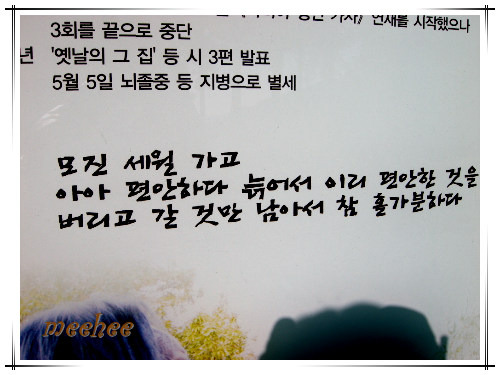 연재를 시작했으나
3회를 끝으로 중단
년 '옛날의 그 집' 등 시 3편 발표
5월 5일 뇌졸중 등 지병으로 별세
모진 세월 가고
아아 편안하다 늙어서 이리 편안한 것을
버리고 갈 것만 남아서 참 홀가분하다
meehee